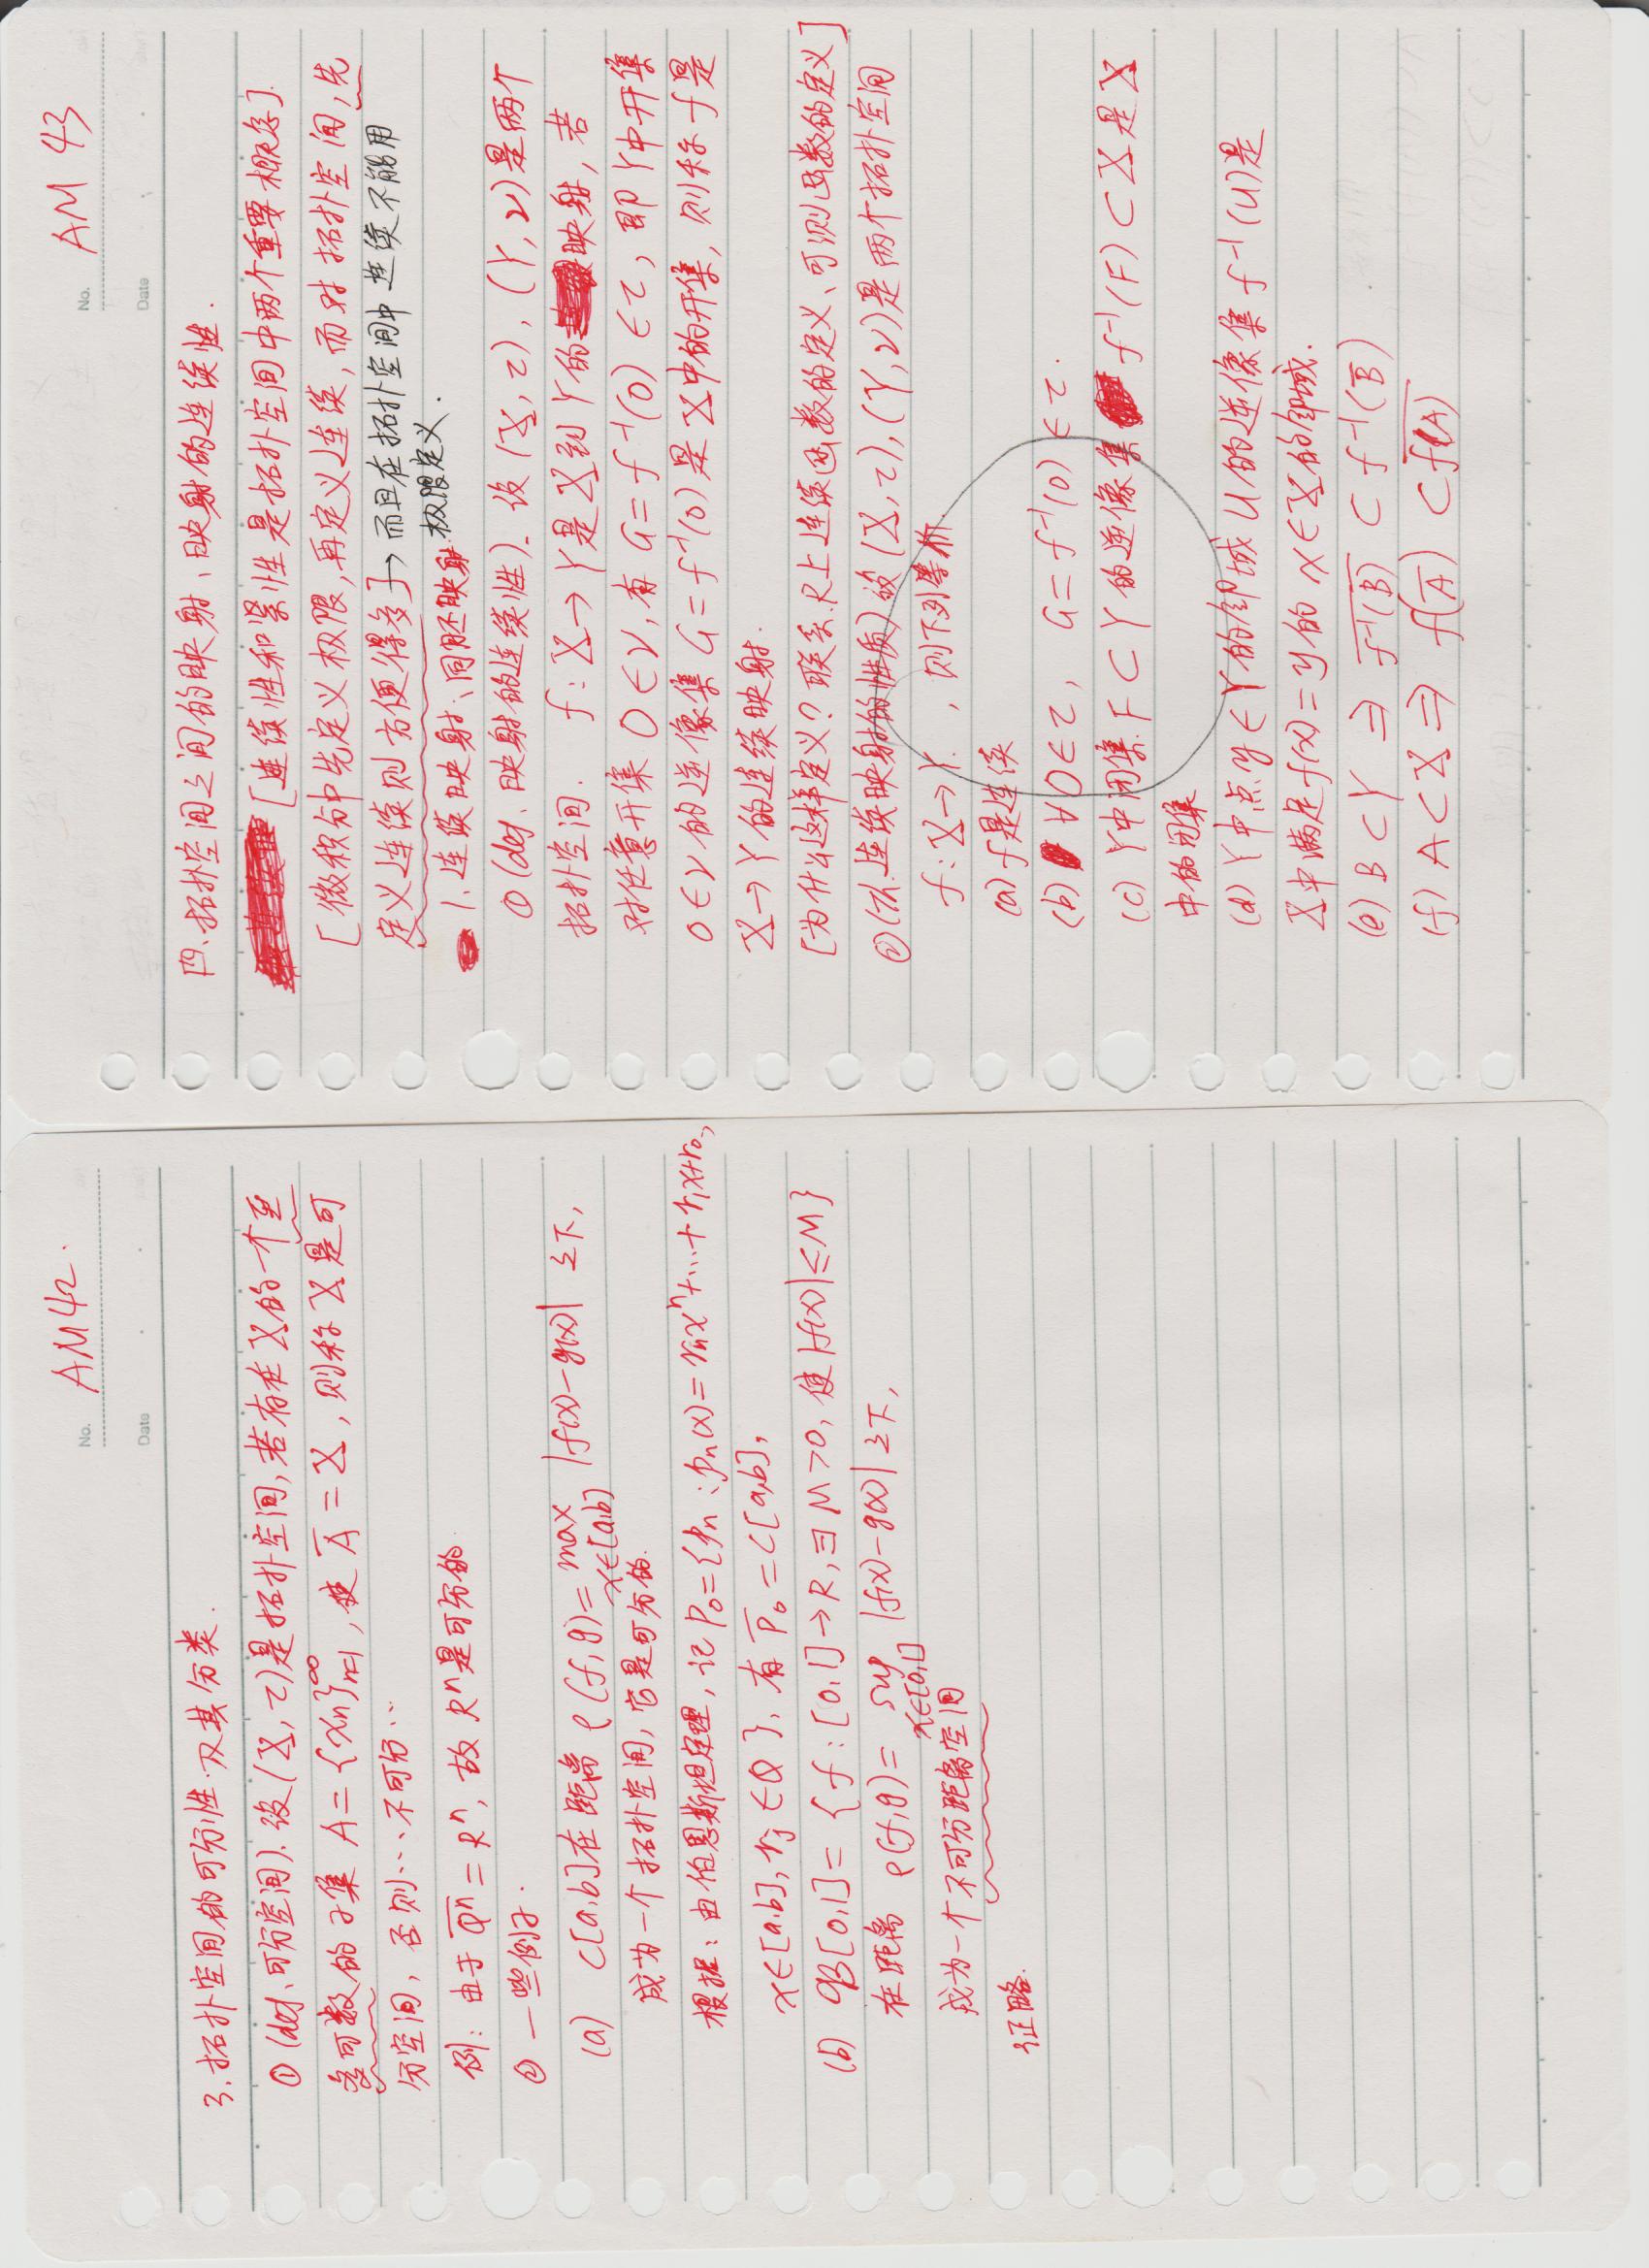 No. AM42.
Date
3. 拓扑空间的可分性及其分类.
① (def. 可分空间). 设 (X, τ) 是拓扑空间, 若存在 X 的一个至
多可数的子集 A = {xn}∞n=1, 使 A̅ = X, 则称 X 是可
分空间, 否则…不可分…
例: 由于 Q̅ⁿ̅ = Rⁿ, 故 Rⁿ 是可分的
② 一些例子.
(a) C[a,b] 在距离 ρ(f,g) = max x∈[a,b] |f(x)-g(x)| 之下,
成为一个拓扑空间, 它是可分的.
根据: 由伯恩斯坦定理, 记 P₀ = {pn : pn(x) = rnxⁿ+…+r₁x+r₀,
x∈[a,b], rj∈Q}, 有 P̅₀ = C[a,b],
(b) B[0,1] = {f : [0,1]→R, ∃M>0, 使|f(x)|≤M}
在距离 ρ(f,g) = sup x∈[0,1] |f(x)-g(x)| 之下,
成为一个不可分距离空间
证略.
No. AM 43
Date
四. 拓扑空间之间的映射、映射的连续性.
[连续性和紧性是拓扑空间中两个重要概念].
[微积分中先定义极限, 再定义连续, 而对拓扑空间, 先
定义连续则方便得多] → 而且在拓扑空间中连续不能用
极限定义.
1. 连续映射、同胚映射
① (def. 映射的连续性). 设 (X, τ), (Y, ν) 是两个
拓扑空间. f : X → Y 是 X 到 Y 的映射, 若
对任意开集 O∈ν, 有 G = f⁻¹(O) ∈τ, 即 Y 中开集
O∈ν 的逆像集 G = f⁻¹(O) 是 X 中的开集, 则称 f 是
X → Y 的连续映射.
[为什么这样定义? 联系 R 上连续函数的定义、可测函数的定义]
② (Th. 连续映射的性质) 设 (X, τ), (Y, ν) 是两个拓扑空间
f : X → Y. , 则下列等价.
(a) f 是连续
(b) ∀O∈τ, G = f⁻¹(O) ∈τ.
(c) Y 中闭集 F ⊂ Y 的逆像集 f⁻¹(F) ⊂ X 是 X
中的闭集
(d) Y 中点 y∈Y 的邻域 U 的逆像集 f⁻¹(U) 是
X 中满足 f(x) = y 的 x∈X 的邻域.
(e) B ⊂ Y ⇒ f̅⁻̅¹̅(̅B̅)̅ ⊂ f⁻¹(B̅)
(f) A ⊂ X ⇒ f(A̅) ⊂ f̅(̅A̅)̅